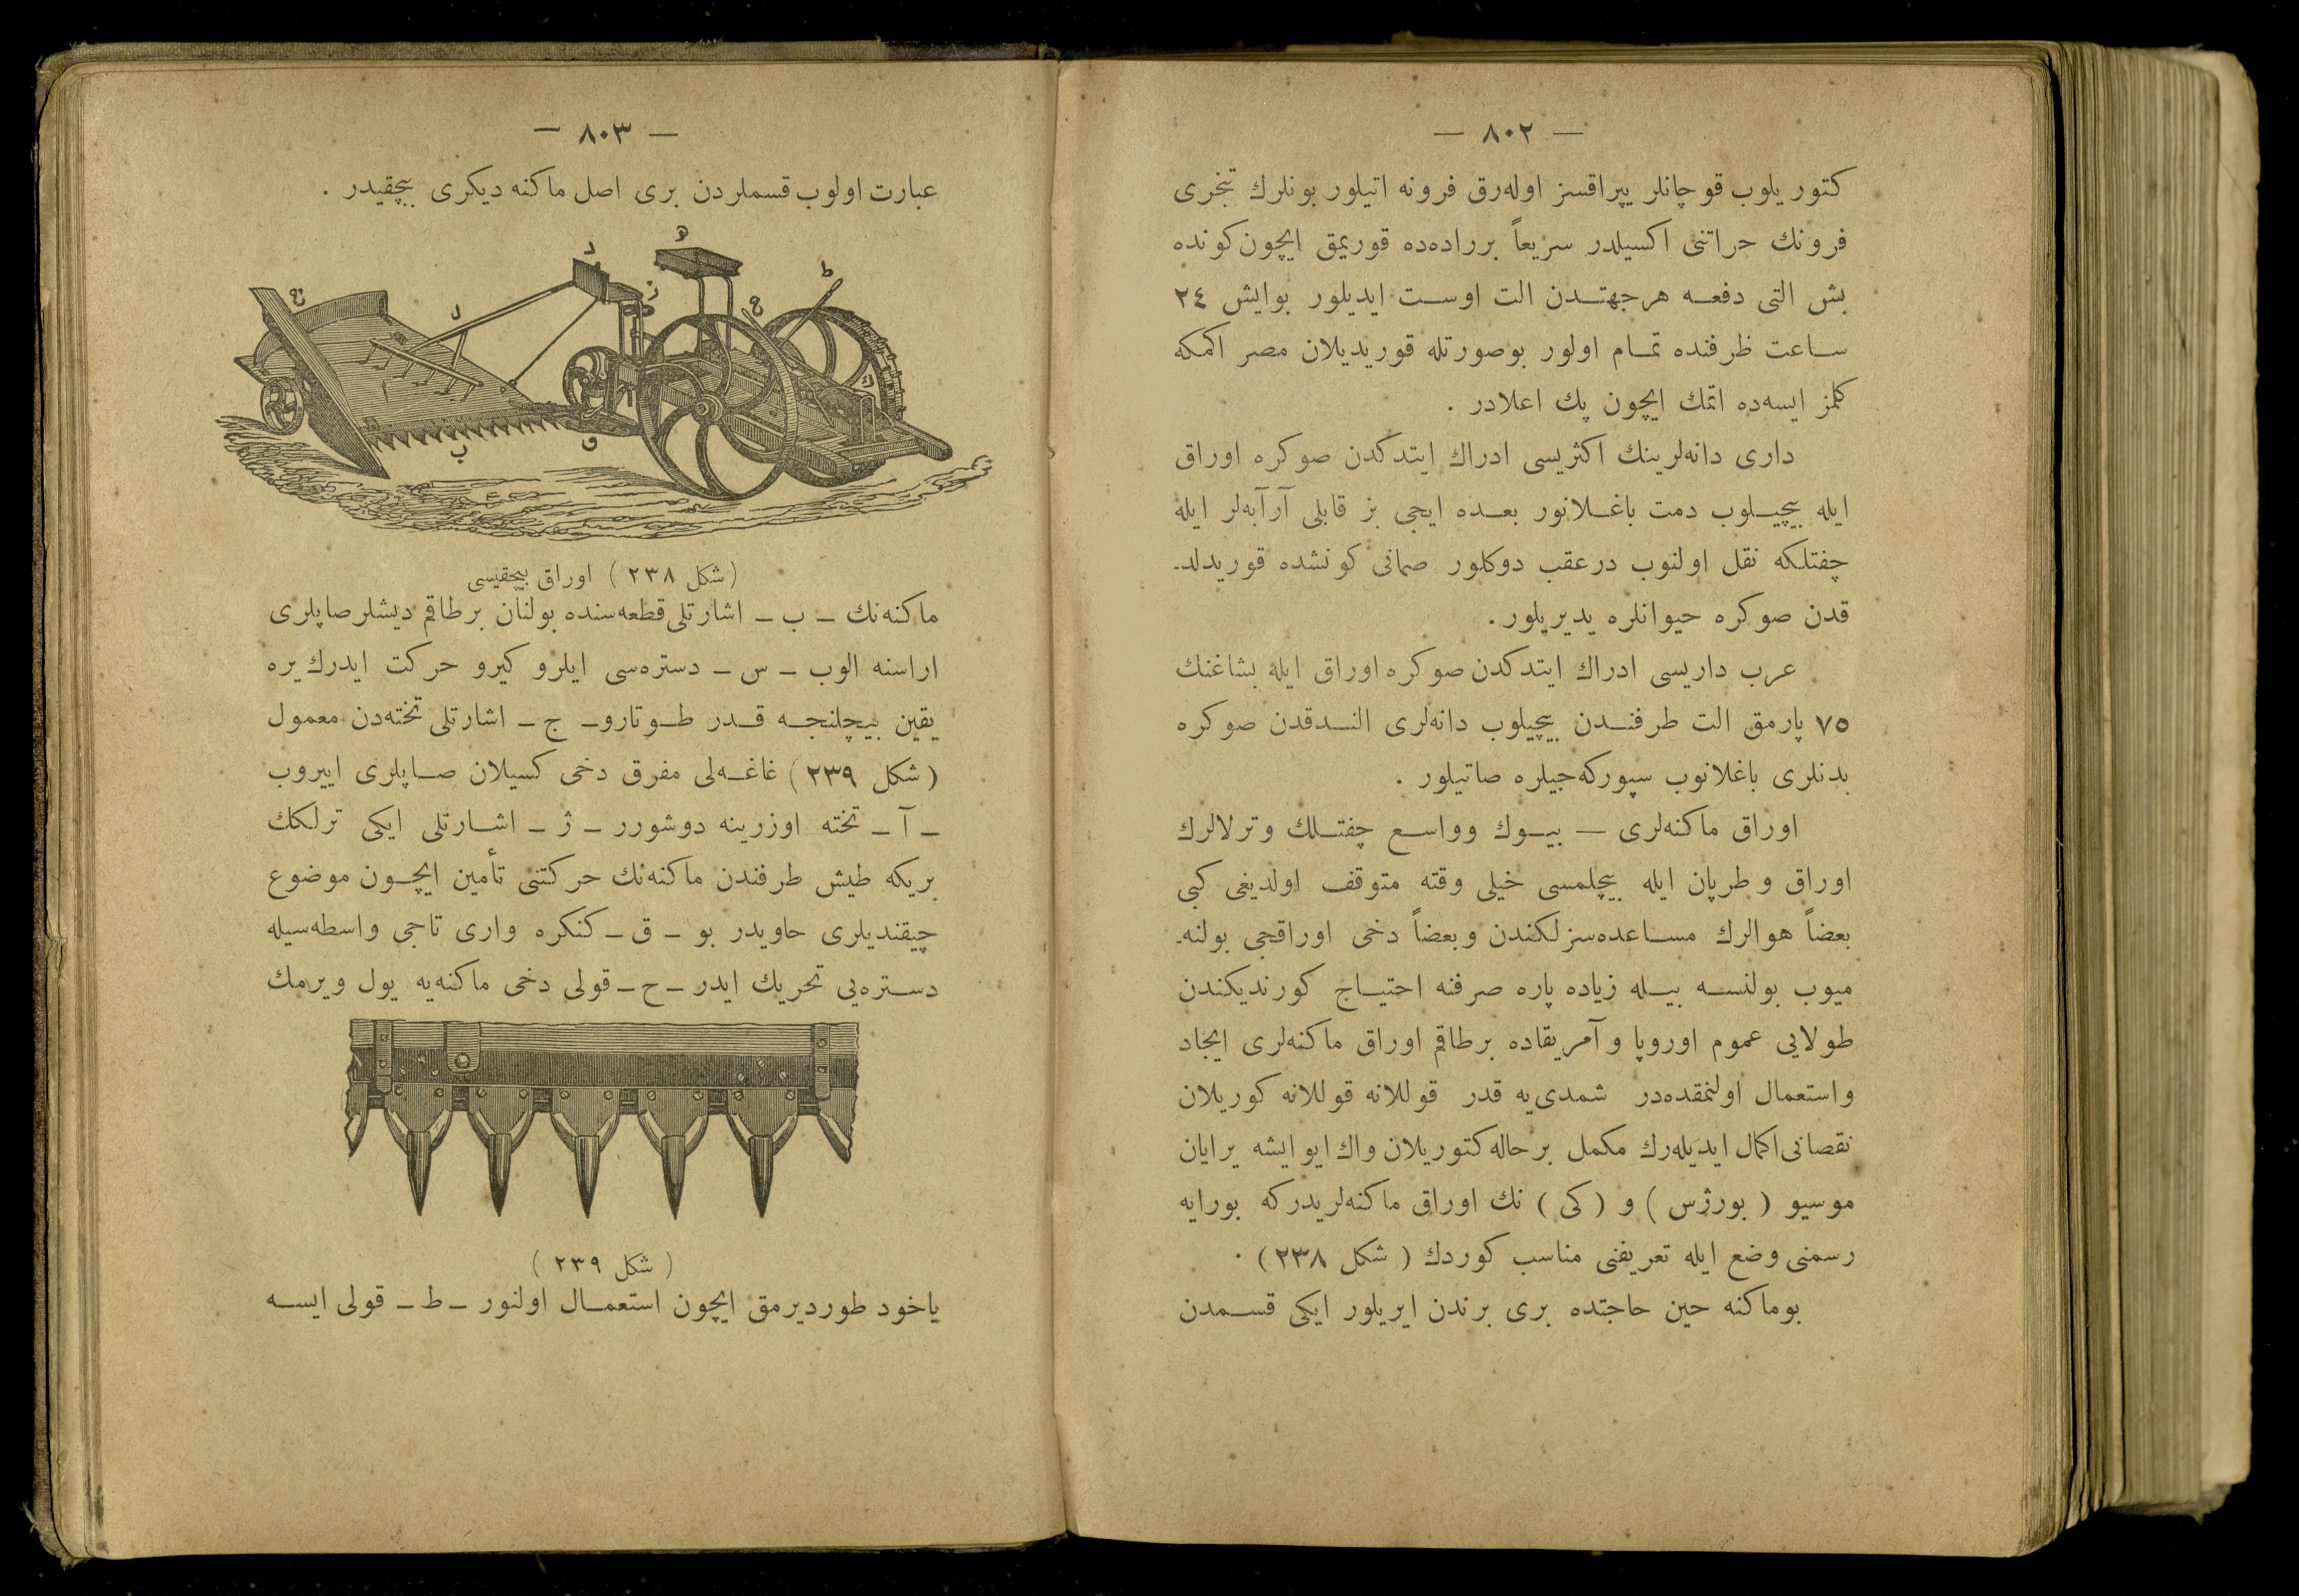 — ٨٠٢ —
كتوريلوب قوچانلر يپراقسز اولەرق فرونە اتيلور بونلرك تبخرى
فرونك حراتنى اكسيلدر سريعاً بررادەدە قوريمق ايچون كوندە
بش التى دفعە هرجهتدن الت اوست ايديلور بوايش ٢٤
ساعت ظرفندە تمام اولور بوصورتلە قوريديلان مصر اكمكە
كلمز ايسەدە اتمك ايچون پك اعلادر .
دارى دانەلرينك اكثريسى ادراك ايتدكدن صوكرە اوراق
ايلە بيچيلوب دمت باغلانور بعدە ايچى بز قابلى آرآبەلر ايلە
چفتلكە نقل اولنوب درعقب دوكلور صمانى كونشدە قوريدلد-
قدن صوكرە حيوانلرە يديريلور.
عرب داريسى ادراك ايتدكدن صوكرە اوراق ايلە بشاغنك
٧٥ پارمق الت طرفندن بيچيلوب دانەلرى الندقدن صوكرە
بدنلرى باغلانوب سپوركەجيلرە صاتيلور .
اوراق ماكنەلرى — بيوك وواسع چفتلك وترلالرك
اوراق وطرپان ايلە بيچلمسى خيلى وقتە متوقف اولديغى كبى
بعضاً هوالرك مساعدەسزلكندن وبعضاً دخى اوراقجى بولنە-
ميوب بولنسە بيلە زيادە پارە صرفنە احتياج كورنديكندن
طولايى عموم اوروپا وآمريقادە برطاقم اوراق ماكنەلرى ايجاد
واستعمال اولنمقدەدر شمدىيە قدر قوللانە قوللانە كوريلان
نقصانى اكمال ايديلەرك مكمل برحالە كتوريلان واك ايو ايشە يرايان
موسيو ( بورژس ) و ( كى ) نك اوراق ماكنەلريدركە بورايە
رسمنى وضع ايلە تعريفنى مناسب كوردك ( شكل ٢٣٨ ) .
بوماكنە حين حاجتدە برى برندن ايريلور ايكى قسمدن
— ٨٠٣ —
عبارت اولوب قسملردن برى اصل ماكنە ديكرى بيچقيدر .
( شكل ٢٣٨ ) اوراق بيچقيسى
ماكنەنك – ب – اشارتلى قطعەسندە بولنان برطاقم ديشلر صاپلرى
اراسنە الوب – س – دسترەسى ايلرو كيرو حركت ايدرك يرە
يقين بيچلنجە قدر طوتارو– ج – اشارتلى تختەدن معمول
( شكل ٢٣٩ ) غاغەلى مفرق دخى كسيلان صاپلرى اييروب
– آ – تختە اوزرينە دوشورر – ژ – اشارتلى ايكى ترلكك
بريكە طيش طرفندن ماكنەنك حركتنى تأمين ايچون موضوع
چيقنديلرى حاويدر بو – ق – كنكرە وارى تاجى واسطەسيلە
دسترەيى تحريك ايدر – ح – قولى دخى ماكنەيە يول ويرمك
( شكل ٢٣٩ )
ياخود طورديرمق ايچون استعمال اولنور – ط – قولى ايسە